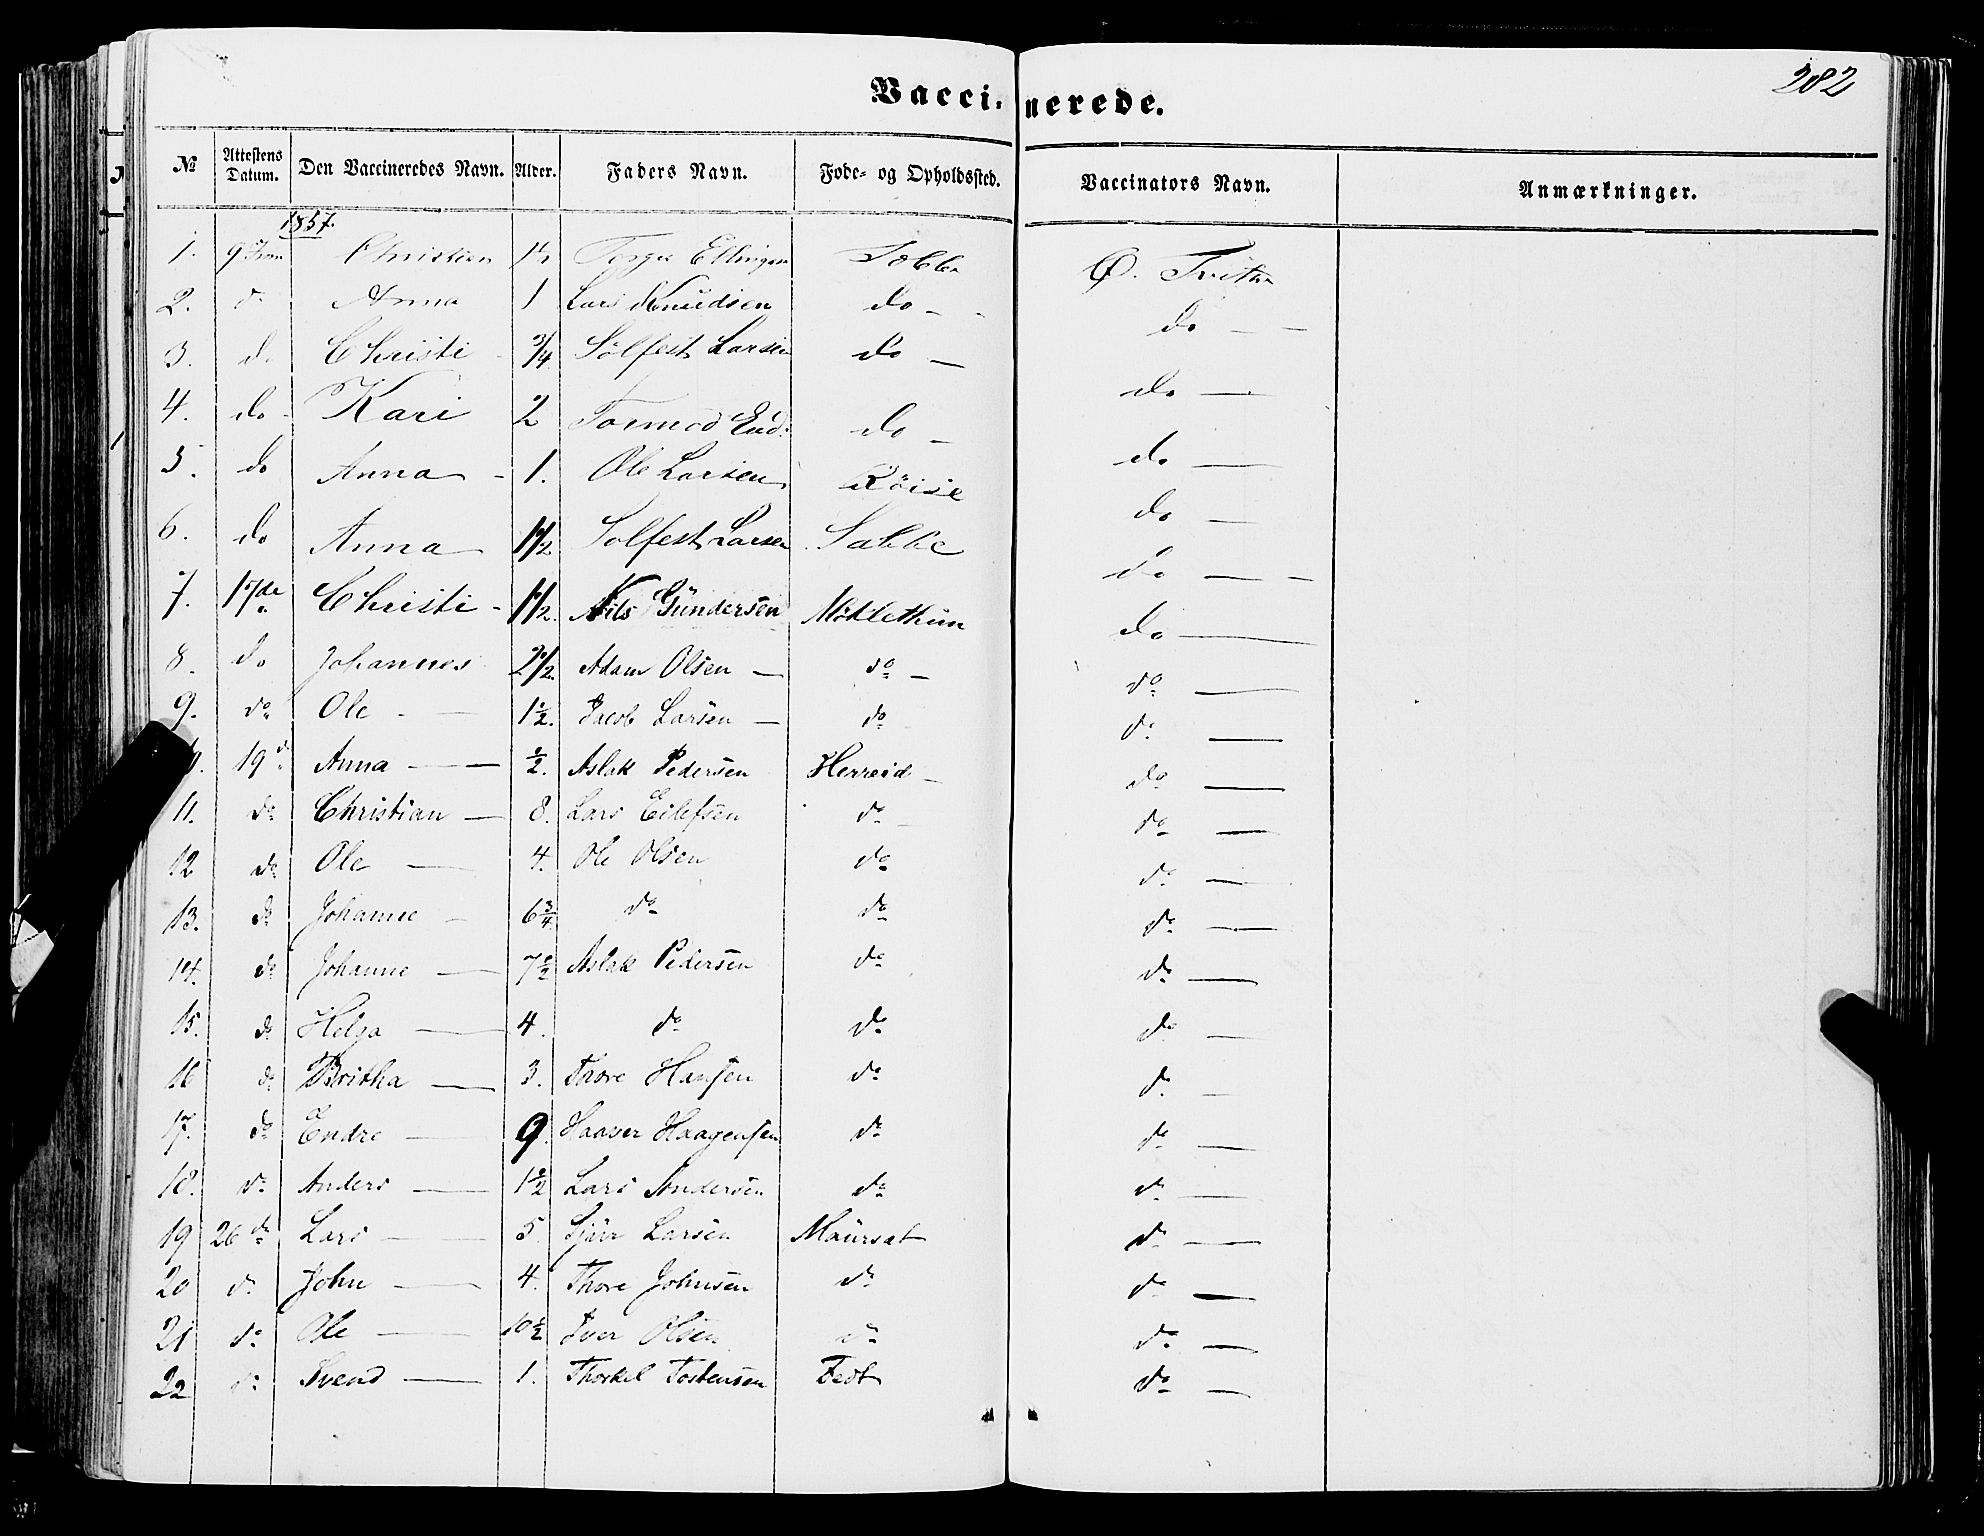 282
Vaccinerede.
№ Attestens Datum. Den Vaccineredes Navn. Alder. Faders Navn. Føde- og Opholdssted. Vaccinators Navn. Anmærkninger.
1857.
1. 9 Christian Ellingsen
2. do Anna 1 Lars Knudsen do - do -
3. do Christi 3/4 Solfest Larsen do - do -
4. do Kari 2 Tormod do - do -
5. do Anna - 1. Ole Larsen Röise do -
6. do Anna 1 1/2 Solfest Larsen Sække do -
7. 15de Christi - 1 1/2. Nils Gundersen Möklethun do -
8. do Johannes 2 1/2. Adam Olsen - do - do -
9. do Ole - 1 1/2. Jacob Larsen - do do -
19 do Anna - 1/2. Aslak Pedersen Herreid - do -
11. do Christian - 8. Lars Eilefsen do do -
12 do Ole - 4. Ole Olsen do do -
13. do Johanne - 6 3/4 do do do -
14. do Johanne - 7 1/2 Aslak Pedersen do do -
15. do Helga - 4. do do do -
16 do Britha - 3. Thore Hansen do do -
17. do Endre - 9. Haaver Haagensen do do -
18. do Anders - 1 1/2 Lars Andersen do do -
19 26 do Lars - 5. Sjur Larsen Maursat do -
20 do John - 4. Thore Johnsen do do -
21 do Ole - 10 1/2 Iver Olsen do do -
22 do Svend - 1. Thorkel Tostensen Fedt do -